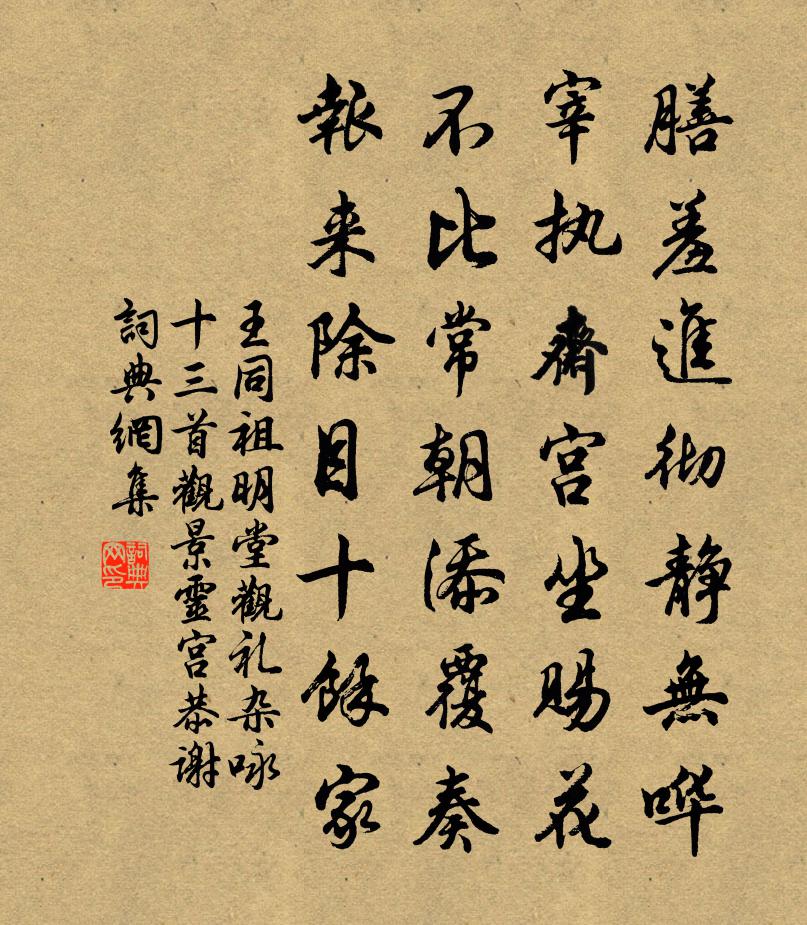 膳羞進彻静無哗
宰执齋宫坐賜花
不比常朝添覆奏
報来除目十餘家
王同祖明堂觀礼杂咏
十三首觀景靈宫恭谢
詞典網集
詞典網印